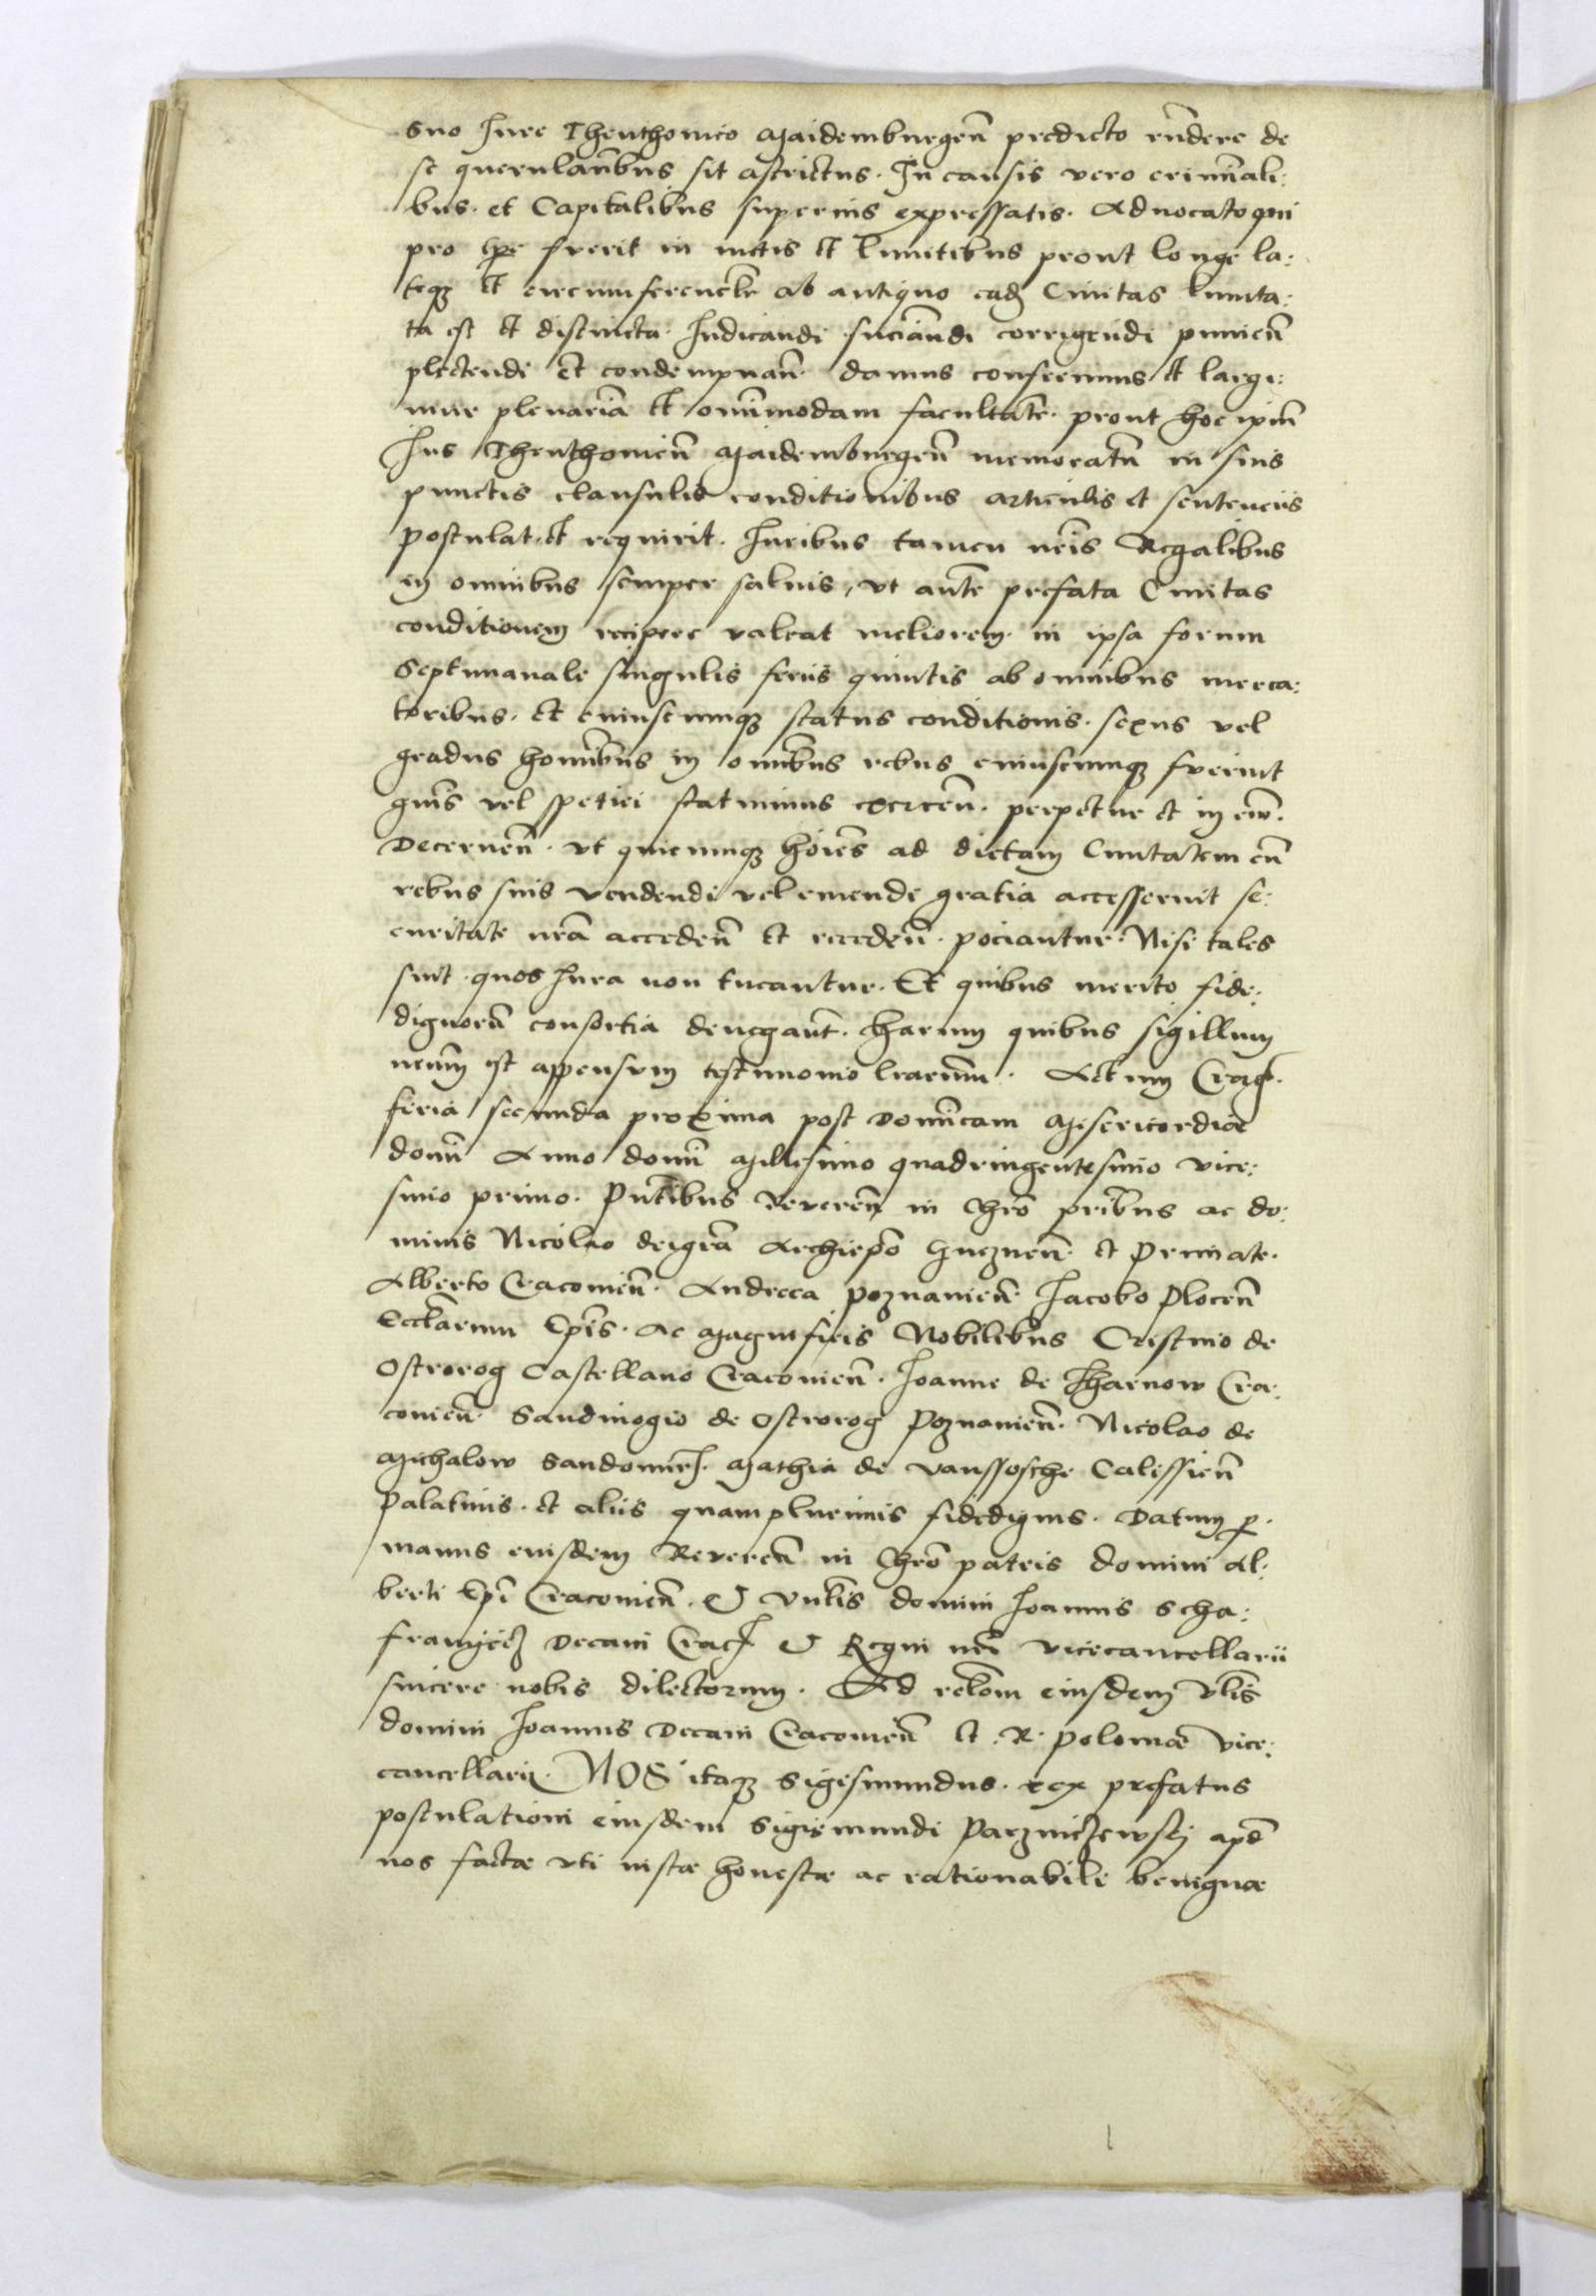 suo Jure Theuthonico Maidemburgeñ predicto rñdere de
se querulantibus sit astrictus. In causis vero criminali:
bus. et Capitalibus superius expressatis. Aduocato qui
pro tpe fuerit in metis et limitibus prout longe la:
teqz et circumferencialr ab antiquo eadz Ciuitas limita:
ta est et distincta. Judicandi sniandi corrigendi punieñ
plectendi et condempnañ damus conferimus et largi:
mur plenariã et omnimodam facultatẽ. prout hoc ipm̃
Jus Theuthonicũ Maidemburgeñ memoratũ in suis
punctis clausulis conditionibus articulis et sentenciis
postulat. et requirit. Juribus tamen nris Regalibus
in omnibus semper saluis, vt autẽ prefata Ciuitas
conditionem recipere valeat meliorem. in ipsa forum
Septimanale singulis feriis quintis ab omnibus merca:
toribus. et cuiuscumqz status conditionis. sexus vel
gradus hominibus in omnibus rebus cuiuscumqz fuerint
gñis vel spetiei statuimus exerceñ. perpetue et in ewm.
Decerneñ. vt quicumqz hoiẽs ad dictam Ciuitatem cũ
rebus suis vendendi vel emendi gratia accesserint se:
curitate nrã accedeñ et recedeñ. pociantur. Nisi tales
sint quos Jura non tueantur. Et quibus merito fide:
dignorũ consortia denegant. Harum quibus sigillum
nrum est appensum testimonio lrarum. Actum Crac.
feria secunda proxima post Dominicam Misericordiæ
domi Anno domi Millesimo quadringentesimo vice:
simo primo. Pntibus Reuereñ in Chro pribus ac do:
minis Nicolao dei gra Archiepo Gneznen. et Primate.
Alberto Cracovieñ. Andrea Poznanieñ. Jacobo Ploceñ
Ecclarum Epis. Ac Magnificis Nobilibus Cristino de
Ostrorog Castellano Cracovieñ. Joanne de Tharnow Cra:
covieñ. Sandiuogio de Ostrorog Poznanieñ. Nicolao de
Michalow Sandomir. Mathia de Vanssosche Calissieñ
Palatinis. et aliis quamplurimis fidedignis. Datum p.
manus eiusdem Reuereñ in Chro patris domini Al:
berti Epi Cracovieñ. & Vnlis domini Joannis Scha:
franiecz Decani Crac & Regni nri vicecancellarii
sincere nobis dilectorum. Ad relom eiusdem vlis
domini Joannis Decani Cracovieñ et. R. Poloniæ Vice:
cancellarii. NOS itaqz Sigismundus. rex prefatus
postulationi eiusdem Sigismundi Parznicżewskj apd
nos factæ vti iustæ honestæ ac rationabili benignæ